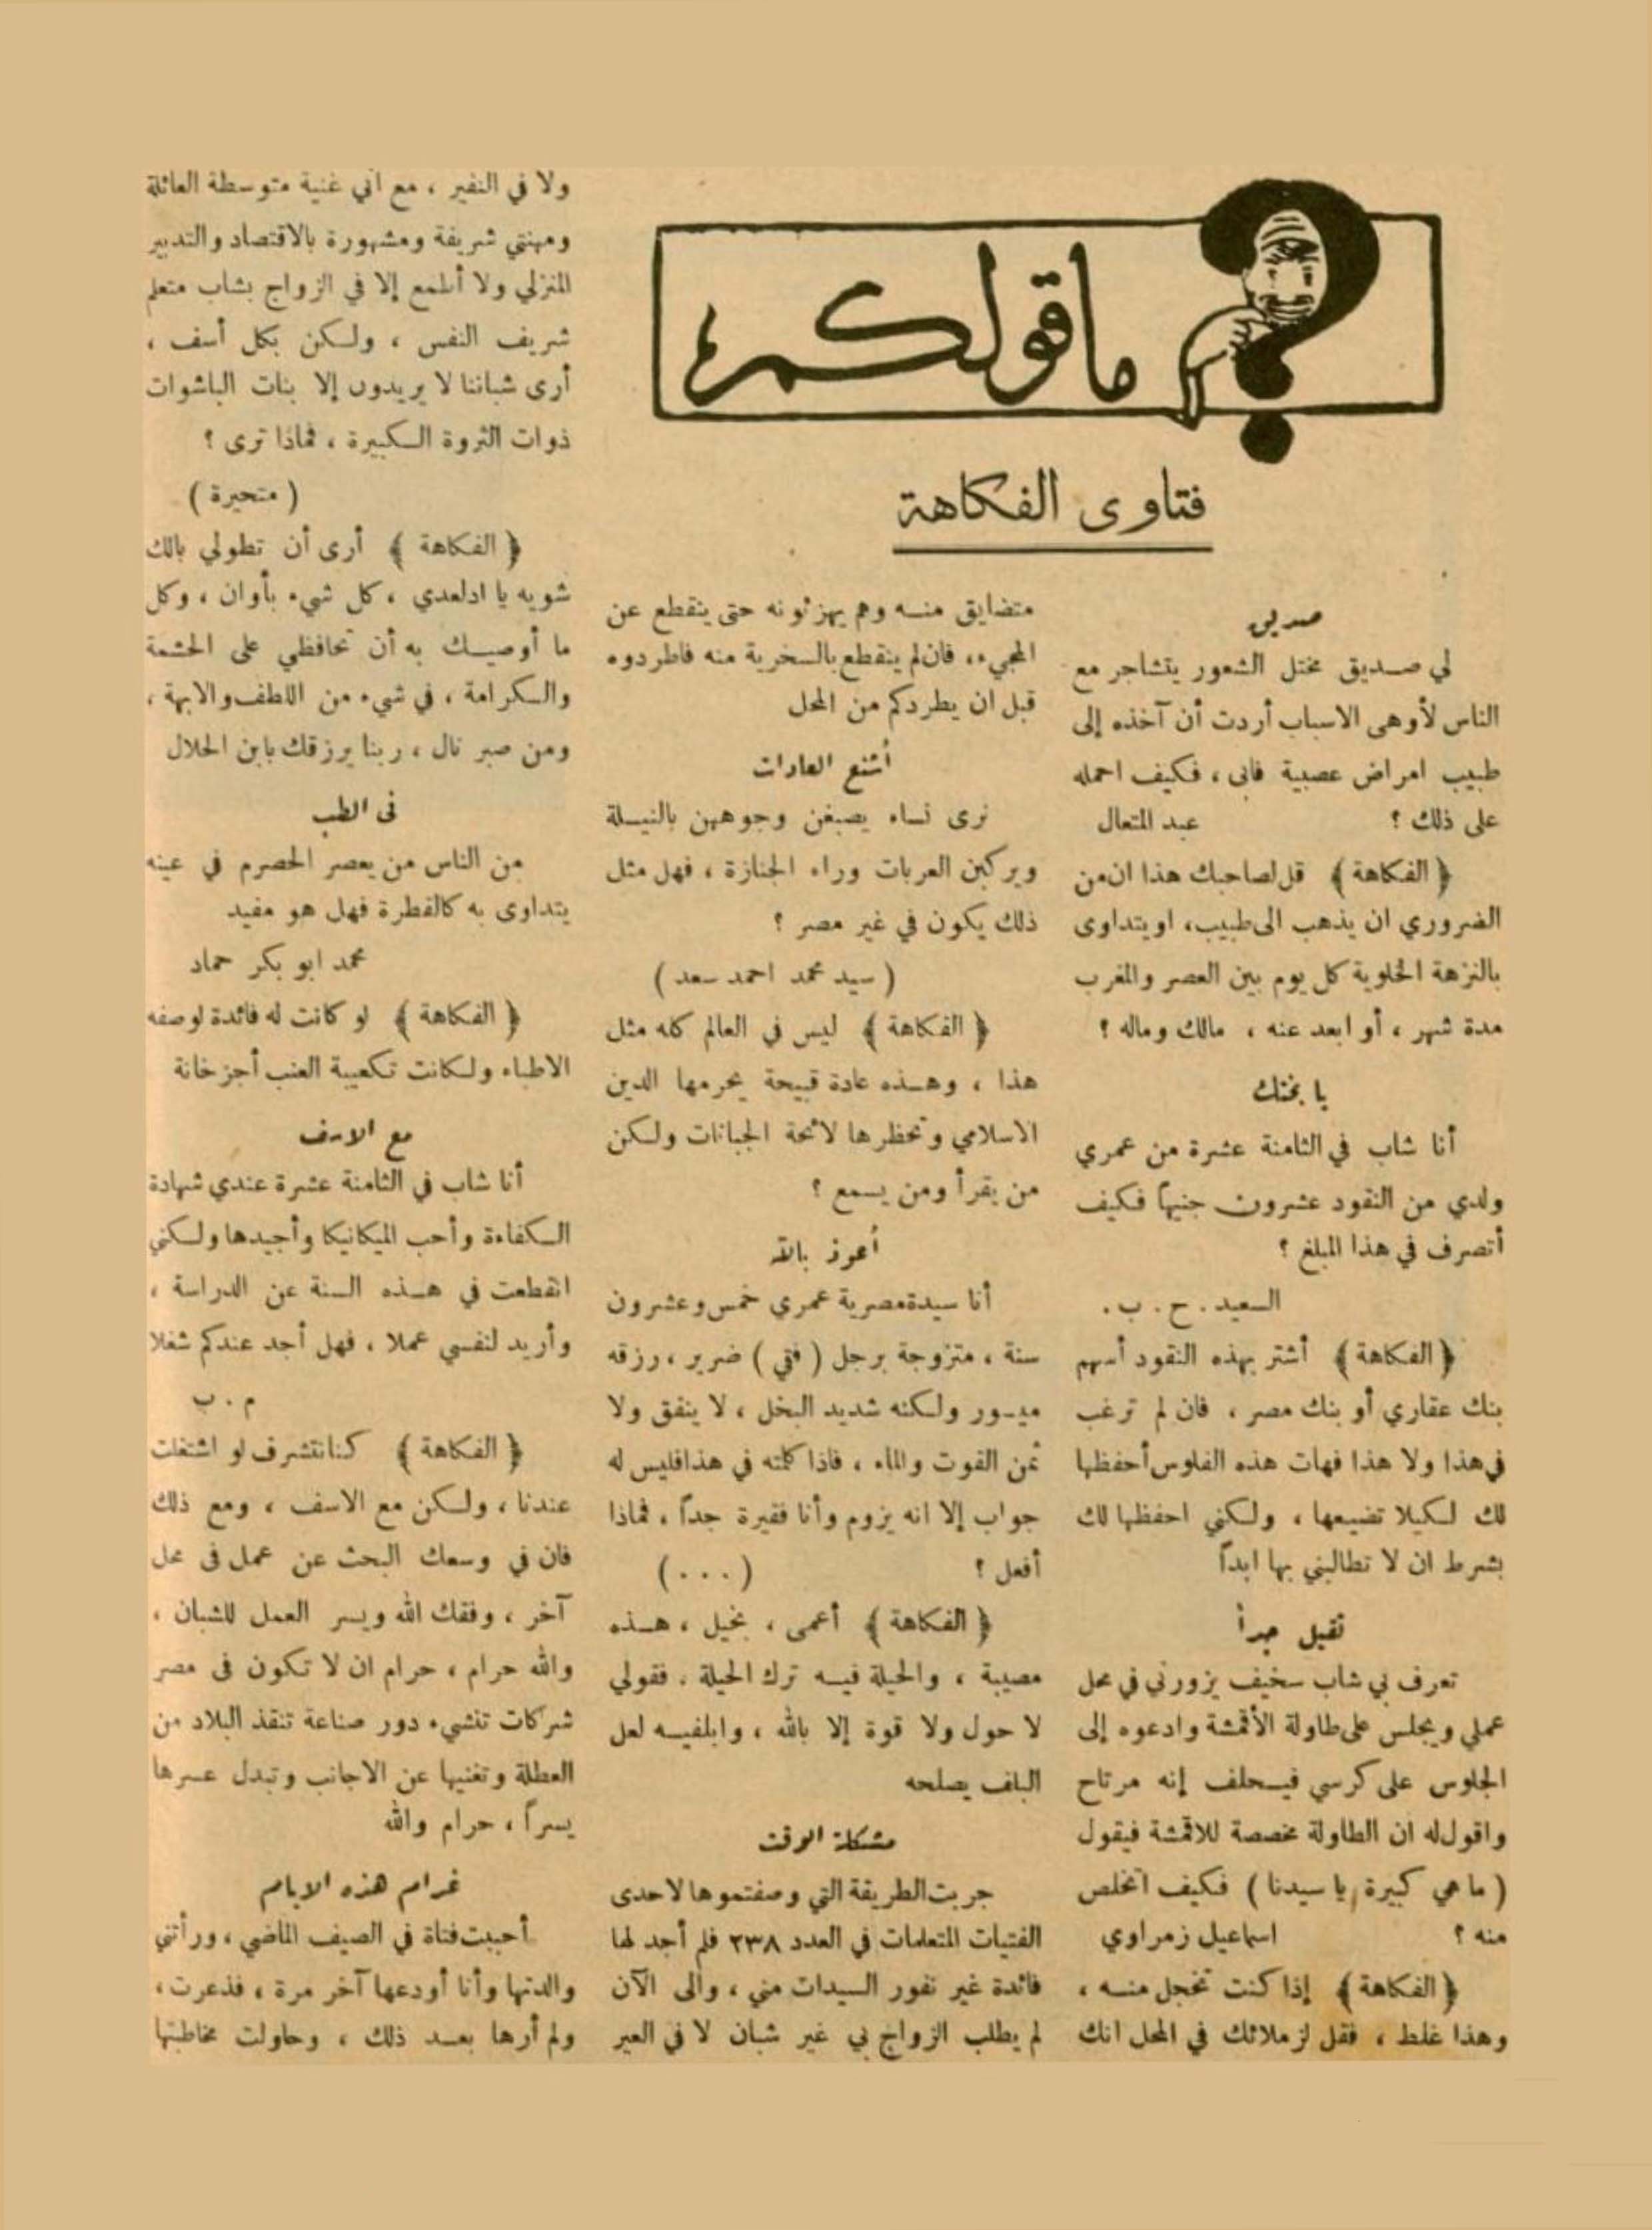 ما قولكم
فتاوى الفكاهة
صديق
لي صديق مختل الشعور يتشاجر مع
الناس لأوهى الاسباب أردت أن آخذه إلى
طبيب امراض عصبية فابى ، فكيف احمله
على ذلك ؟ عبد المتعال
﴿ الفكاهة ﴾ قل لصاحبك هذا ان من
الضروري ان يذهب الى طبيب، او يتداوى
بالنزهة الخلوية كل يوم بين العصر والمغرب
مدة شهر ، أو ابعد عنه ، مالك وماله ؟
يا بختك
أنا شاب في الثامنة عشرة من عمري
ولدي من النقود عشرون جنيهاً فكيف
أتصرف في هذا المبلغ ؟
السعيد . ح . ب .
﴿ الفكاهة ﴾ أشتر بهذه النقود أسهم
بنك عقاري أو بنك مصر ، فان لم ترغب
في هذا ولا هذا فهات هذه الفلوس أحفظها
لك لكيلا تضيعها ، ولكني احفظها لك
بشرط ان لا تطالبني بها ابداً
ثقيل جداً
تعرف بي شاب سخيف يزورني في محل
عملي ويجلس على طاولة الأقمشة وادعوه إلى
الجلوس على كرسي فيحلف إنه مرتاح
واقول له ان الطاولة مخصصة للاقمشة فيقول
( ما هي كبيرة يا سيدنا ) فكيف اتخلص
منه ؟ اسماعيل زمراوي
﴿ الفكاهة ﴾ إذا كنت تخجل منه ،
وهذا غلط ، فقل لزملائك في المحل انك
متضايق منه وهم يهزئونه حتى ينقطع عن
المجيء، فان لم ينقطع بالسخرية منه فاطردوه
قبل ان يطردكم من المحل
أشنع العادات
نرى نساء يصبغن وجوههن بالنيلة
ويركبن العربات وراء الجنازة ، فهل مثل
ذلك يكون في غير مصر ؟
( سيد محمد احمد سعد )
﴿ الفكاهة ﴾ ليس في العالم كله مثل
هذا ، وهذه عادة قبيحة يحرمها الدين
الاسلامي وتحظرها لائحة الجبانات ولكن
من يقرأ ومن يسمع ؟
أعوذ بالله
أنا سيدة مصرية عمري خمس وعشرون
سنة ، متزوجة برجل ( فقي ) ضرير ، رزقه
ميسور ولكنه شديد البخل ، لا ينفق ولا
ثمن القوت والماء ، فاذا كلمته في هذا فليس له
جواب إلا انه يزوم وأنا فقيرة جداً ، فماذا
أفعل ؟ ( . . . )
﴿ الفكاهة ﴾ أعمى ، بخيل ، هذه
مصيبة ، والحيلة فيه ترك الحيلة . فقولي
لا حول ولا قوة إلا بالله ، وابلفيه لعل
البلف يصلحه
مشكلة الوقت
جربت الطريقة التي وصفتموها لاحدى
الفتيات المتعلمات في العدد ٢٣٨ فلم أجد لها
فائدة غير نفور السيدات مني ، والى الآن
لم يطلب الزواج بي غير شبان لا في العير
ولا في النفير ، مع اني غنية متوسطة العائلة
ومهنتي شريفة ومشهورة بالاقتصاد والتدبير
المنزلي ولا أطمع إلا في الزواج بشاب متعلم
شريف النفس ، ولكن بكل أسف ،
أرى شباننا لا يريدون إلا بنات الباشوات
ذوات الثروة الكبيرة ، فماذا ترى ؟
( متحيرة )
﴿ الفكاهة ﴾ أرى أن تطولي بالك
شويه يا ادلعدي ، كل شيء بأوان ، وكل
ما أوصيك به أن تحافظي على الحشمة
والكرامة ، في شيء من اللطف والابهة ،
ومن صبر نال ، ربنا يرزقك بابن الحلال
فى الطب
من الناس من يعصر الحصرم في عينه
يتداوى به كالقطرة فهل هو مفيد
محمد ابو بكر حماد
﴿ الفكاهة ﴾ لو كانت له فائدة لوصفه
الاطباء ولكانت تكعيبة العنب أجزخانة
مع الاسف
أنا شاب في الثامنة عشرة عندي شهادة
الكفاءة وأحب الميكانيكا وأجيدها ولكني
انقطعت في هذه السنة عن الدراسة ،
وأريد لنفسي عملا ، فهل أجد عندكم شغلا
م . ب
﴿ الفكاهة ﴾ كنا نتشرف لو اشتغلت
عندنا ، ولكن مع الاسف ، ومع ذلك
فان في وسعك البحث عن عمل فى محل
آخر ، وفقك الله ويسر العمل للشبان ،
والله حرام ، حرام ان لا تكون فى مصر
شركات تنشيء دور صناعة تنقذ البلاد من
العطلة وتغنيها عن الاجانب وتبدل عسرها
يسراً ، حرام والله
غرام هذه الايام
أحببت فتاة في الصيف الماضي ، ورأتني
والدتها وأنا أودعها آخر مرة ، فذعرت ،
ولم أرها بعد ذلك ، وحاولت مخاطبتها